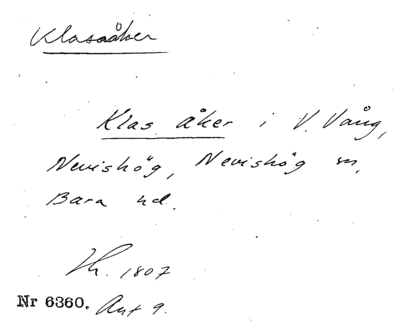 Klasaåker
Klas åker i V. Vång,
Nevishög, Nevishög sn,
Bara hd.
Th. 1807
Nr 6360. Akt 9.